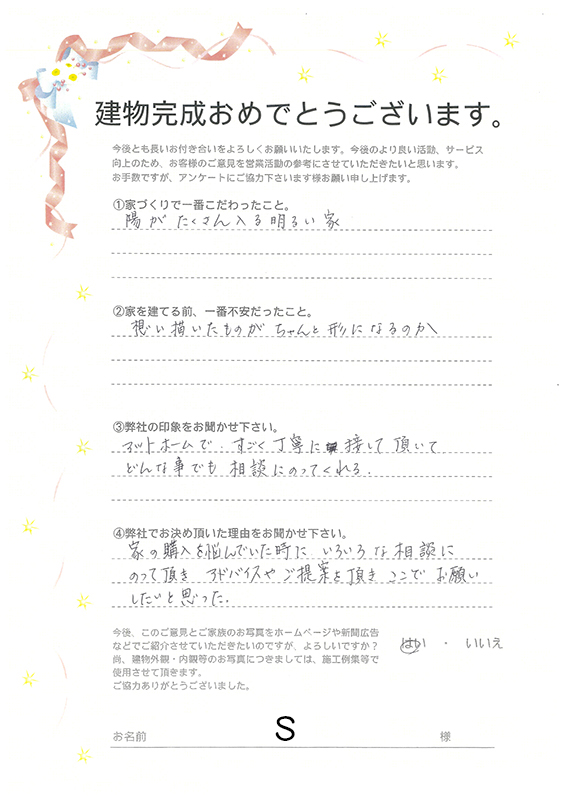 建物完成おめでとうございます。
今後とも長いお付き合いをよろしくお願いいたします。今後のより良い活動、サービス
向上のため、お客様のご意見を営業活動の参考にさせていただきたいと思います。
お手数ですが、アンケートにご協力下さいます様お願い申し上げます。
①家づくりで一番こだわったこと。
陽がたくさん入る明るい家
②家を建てる前、一番不安だったこと。
想い描いたものがちゃんと形になるのか
③弊社の印象をお聞かせ下さい。
アットホームで、すごく丁寧に接して頂いて
どんな事でも相談にのってくれる。
④弊社でお決め頂いた理由をお聞かせ下さい。
家の購入を悩んでいた時にいろいろな相談に
のって頂きアドバイスやご提案を頂きここでお願い
したいと思った。
今後、このご意見とご家族のお写真をホームページや新聞広告
などでご紹介させていただきたいのですが、よろしいですか？
はい ・ いいえ
尚、建物外観・内観等のお写真につきましては、施工例集等で
使用させて頂きます。
ご協力ありがとうございました。
お名前 S 様